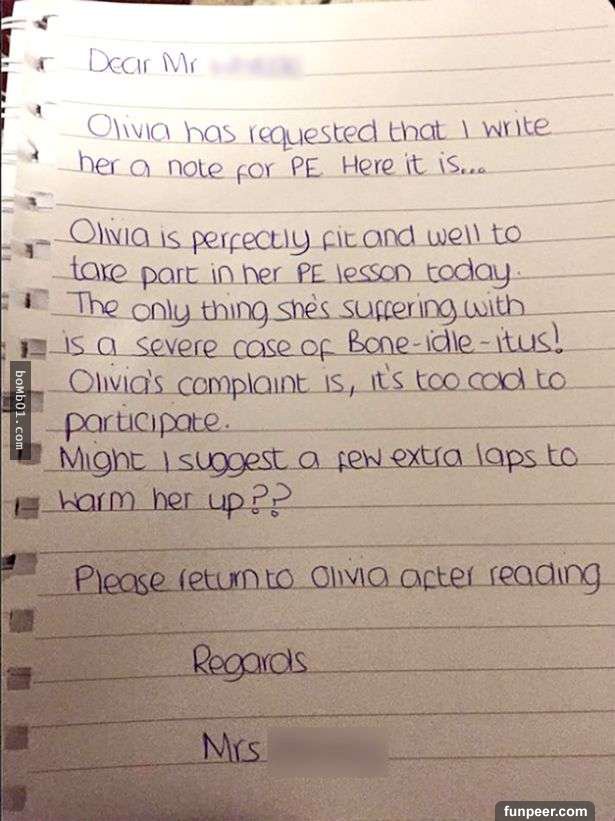 Dear Mr
Olivia has requested that I write
her a note for PE Here it is...
Olivia is perfectly fit and well to
take part in her PE lesson today.
The only thing she's suffering with
is a severe case of Bone-idle-itus!
Olivia's complaint is, it's too cold to
participate.
Might I suggest a few extra laps to
warm her up??
Please return to Olivia after reading
Regards
Mrs
bomb01.com
funpeer.com